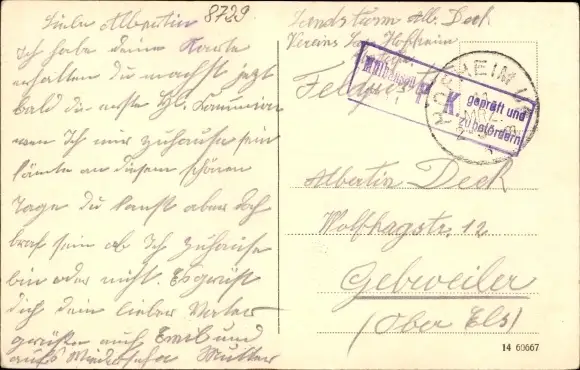 Liebe Albertin 8729
Ich habe deine Karte
erhalten du machst jetzt
bald die erste Hl. Comunion
wen Ich nur zuhause sein
könte an diesem schönen
Tage du kanst aber doch
braf sein ob Ich zuhause
bin oder nicht. Es grüßt
dich dein lieber Vater
grüße auch Emil und
auf Wiedersehn Mutter
Landsturm Alb. Deck
Vereins Laz. Hofheim
Feldpost
Mülhausen P. K. geprüft und
zu befördern
MRZ
Albertin Deck
Wolfhagstr. 12
Gebweiler
(Ober Els)
14 60667